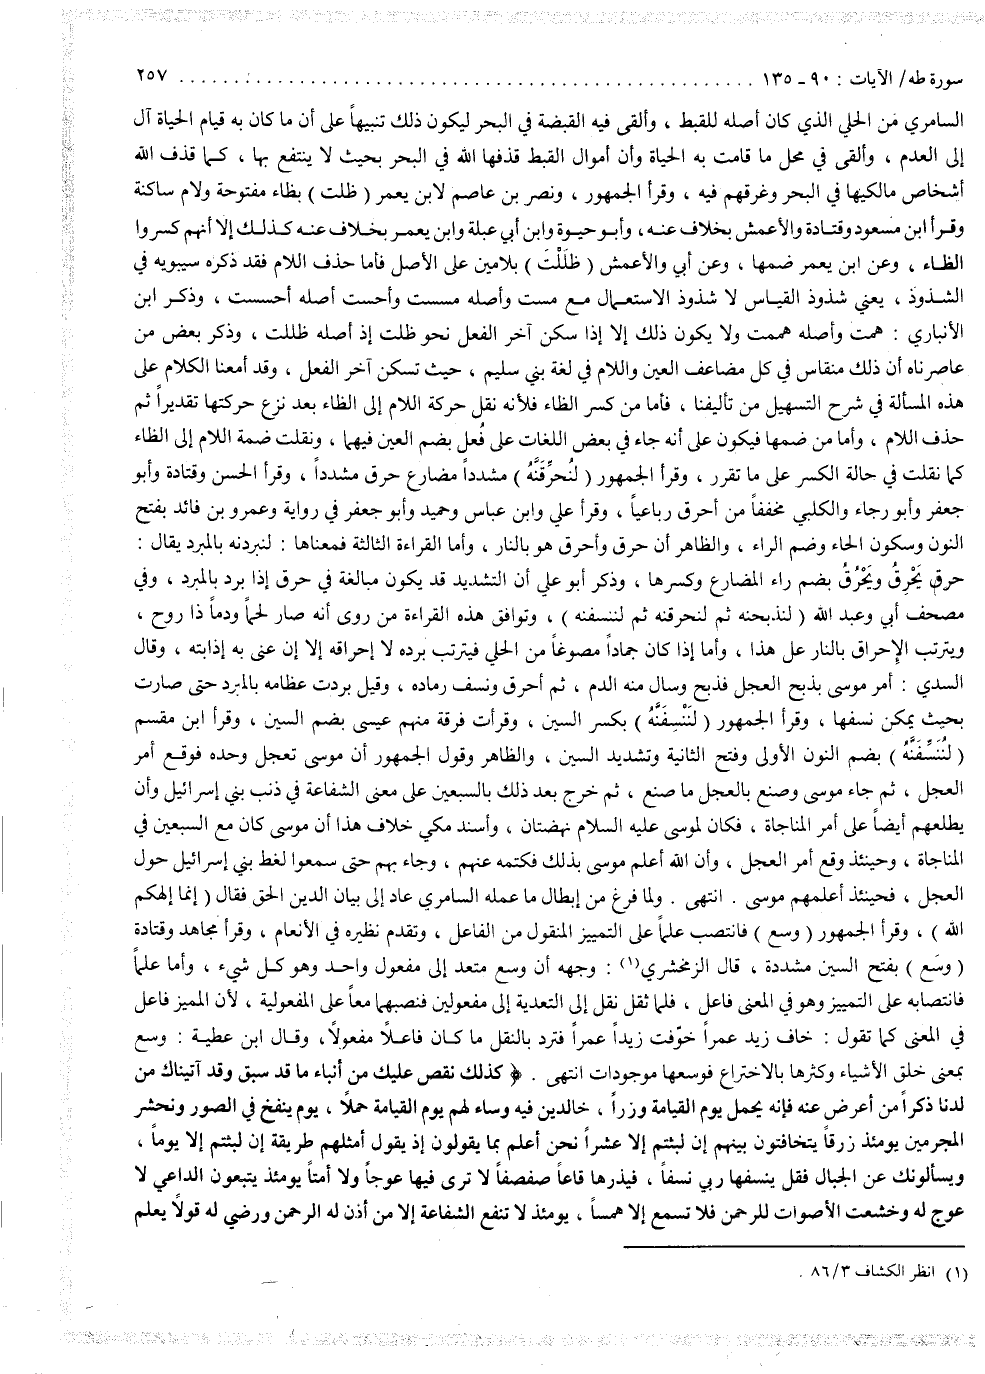 سورة طه/ الآيات : ٩٠ ـ ١٣٥ ........................................................ ٢٥٧
السامري من الحلي الذي كان أصله للقبط ، وألقى فيه القبضة في البحر ليكون ذلك تنبيهاً على أن ما كان به قيام الحياة آل
إلى العدم ، وألقى في محل ما قامت به الحياة وأن أموال القبط قذفها الله في البحر بحيث لا ينتفع بها ، كما قذف الله
أشخاص مالكيها في البحر وغرقهم فيه ، وقرأ الجمهور ، ونصر بن عاصم لابن يعمر ( ظلت ) بظاء مفتوحة ولام ساكنة
وقرأ ابن مسعود وقتادة والأعمش بخلاف عنه، وأبو حيوة وابن أبي عبلة وابن يعمر بخلاف عنه كذلك إلا أنهم كسروا
الظاء ، وعن ابن يعمر ضمها ، وعن أبي والأعمش ( ظَلَلْتَ ) بلامين على الأصل فأما حذف اللام فقد ذكره سيبويه في
الشذوذ ، يعني شذوذ القياس لا شذوذ الاستعمال مع مست وأصله مسست وأحست أصله أحسست ، وذكر ابن
الأنباري : همت وأصله هممت ولا يكون ذلك إلا إذا سكن آخر الفعل نحو ظلت إذ أصله ظللت ، وذكر بعض من
عاصرناه أن ذلك منقاس في كل مضاعف العين واللام في لغة بني سليم ، حيث تسكن آخر الفعل ، وقد أمعنا الكلام على
هذه المسألة في شرح التسهيل من تأليفنا ، فأما من كسر الظاء فلأنه نقل حركة اللام إلى الظاء بعد نزع حركتها تقديراً ثم
حذف اللام ، وأما من ضمها فيكون على أنه جاء في بعض اللغات على فُعل بضم العين فيهما ، ونقلت ضمة اللام إلى الظاء
كما نقلت في حالة الكسر على ما تقرر ، وقرأ الجمهور ( لنُحرِّقَنَّهُ ) مشدداً مضارع حرق مشدداً ، وقرأ الحسن وقتادة وأبو
جعفر وأبو رجاء والكلبي مخففاً من أحرق رباعياً ، وقرأ علي وابن عباس وحميد وأبو جعفر في رواية وعمرو بن فائد بفتح
النون وسكون الحاء وضم الراء ، والظاهر أن حرق وأحرق هو بالنار ، وأما القراءة الثالثة فمعناها : لنبردنه بالمبرد يقال :
حرق يَحْرِقُ ويَحْرُقُ بضم راء المضارع وكسرها ، وذكر أبو علي أن التشديد قد يكون مبالغة في حرق إذا برد بالمبرد ، وفي
مصحف أبي وعبد الله ( لنذبحنه ثم لنحرقنه ثم لننسفنه ) ، وتوافق هذه القراءة من روى أنه صار لحماً ودماً ذا روح ،
ويترتب الإحراق بالنار عل هذا ، وأما إذا كان جماداً مصوغاً من الحلي فيترتب برده لا إحراقه إلا إن عنى به إذابته ، وقال
السدي : أمر موسى بذبح العجل فذبح وسال منه الدم ، ثم أحرق ونسف رماده ، وقيل بردت عظامه بالمبرد حتى صارت
بحيث يمكن نسفها ، وقرأ الجمهور ( لنَنْسِفَنَّهُ ) بكسر السين ، وقرأت فرقة منهم عيسى بضم السين ، وقرأ ابن مقسم
( لنُنَسِّفَنَّهُ ) بضم النون الأولى وفتح الثانية وتشديد السين ، والظاهر وقول الجمهور أن موسى تعجل وحده فوقع أمر
العجل ، ثم جاء موسى وصنع بالعجل ما صنع ، ثم خرج بعد ذلك بالسبعين على معنى الشفاعة في ذنب بني إسرائيل وأن
يطلعهم أيضاً على أمر المناجاة ، فكان لموسى عليه السلام نهضتان ، وأسند مكي خلاف هذا أن موسى كان مع السبعين في
المناجاة ، وحينئذ وقع أمر العجل ، وأن الله أعلم موسى بذلك فكتمه عنهم ، وجاء بهم حتى سمعوا لغط بني إسرائيل حول
العجل ، فحينئذ أعلمهم موسى . انتهى . ولما فرغ من إبطال ما عمله السامري عاد إلى بيان الدين الحق فقال ( إنما إلهكم
الله ) ، وقرأ الجمهور ( وسع ) فانتصب علماً على التمييز المنقول من الفاعل ، وتقدم نظيره في الأنعام ، وقرأ مجاهد وقتادة
( وسَع ) بفتح السين مشددة ، قال الزمخشري(١) : وجهه أن وسع متعد إلى مفعول واحد وهو كل شيء ، وأما علماً
فانتصابه على التمييز وهو في المعنى فاعل ، فلما ثقل نقل إلى التعدية إلى مفعولين فنصبهما معاً على المفعولية ، لأن المميز فاعل
في المعنى كما تقول : خاف زيد عمراً خوّفت زيداً عمراً فترد بالنقل ما كان فاعلاً مفعولاً، وقال ابن عطية : وسع
بمعنى خلق الأشياء وكثرها بالاختراع فوسعها موجودات انتهى . ﴿ كذلك نقص عليك من أنباء ما قد سبق وقد آتيناك من
لدنا ذكراً من أعرض عنه فإنه يحمل يوم القيامة وزراً ، خالدين فيه وساء لهم يوم القيامة حملاً ، يوم ينفخ في الصور ونحشر
المجرمين يومئذ زرقاً يتخافتون بينهم إن لبثتم إلا عشراً نحن أعلم بما يقولون إذ يقول أمثلهم طريقة إن لبثتم إلا يوماً ،
ويسألونك عن الجبال فقل ينسفها ربي نسفاً ، فيذرها قاعاً صفصفاً لا ترى فيها عوجاً ولا أمتاً يومئذ يتبعون الداعي لا
عوج له وخشعت الأصوات للرحمن فلا تسمع إلا همساً ، يومئذ لا تنفع الشفاعة إلا من أذن له الرحمن ورضي له قولاً يعلم
(١) انظر الكشاف ٨٦/٣ .